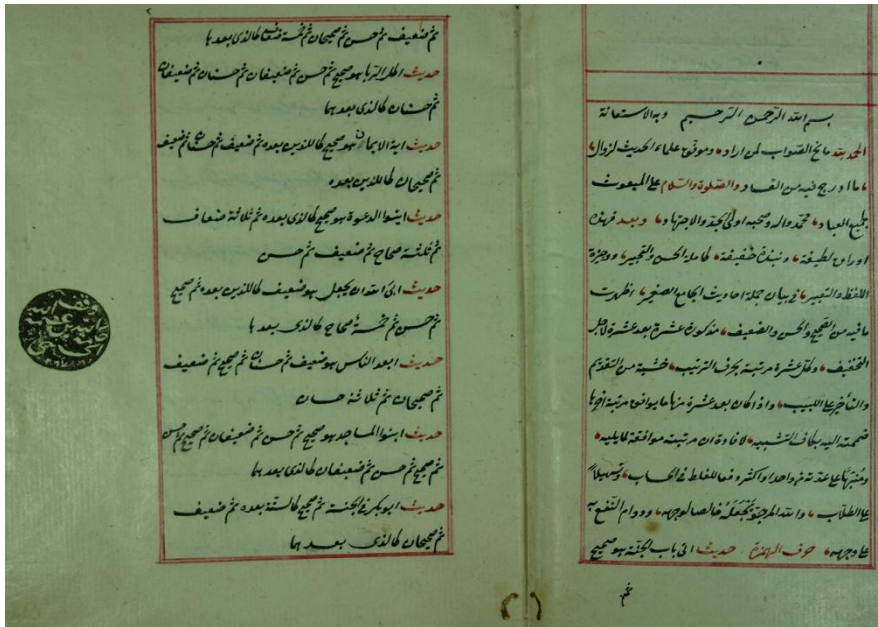 بسم الله الرحمن الرحيم وبه الاستعانة
الحمد لله مانح الصواب لمن اراد، وموفق علماء الحديث لزوال
ما ادرج فيه من الفساد، والصلوة والسلام على المبعوث
لجميع العباد، محمد واله وصحبه اولى الجد والاجتهاد، وبعد فهذه
اوراق لطيفة، ونبذة خفيفة، كاملة الحسن والتحبير، ووجيزة
اللفظ والتعبير، في بيان جملة احاديث الجامع الصغير، اظهرت
ما فيه من الصحيح والحسن والضعيف، مذكورة عشرة بعد عشرة لاجل
التخفيف، وكل عشرة مرتبة بحرف الترتيب، خشية من التقديم
والتأخير على اللبيب، واذا كان بعد عشرة منها ما يوافق مرتبة اخرها
ضممته اليه بكاف التشبيه، لافادة ان مرتبته موافقة لما يليه،
ومنبها على عدته من واحد او اكثر دفعا للغلط في الحساب، وتسهيلا
على الطلاب، والله المرجو بجعله خالصا لوجهه، ودوام النفع به
على وجهه، حرف الهمزة حديث اتى باب الجنة هو صحيح
ثم
ثم ضعيف ثم حسن ثم صحيحان ثم خمسة ضعاف كالذى بعدها
حديث اكل الربا هو صحيح ثم حسن ثم ضعيفان ثم حسنان ثم ضعيفان
ثم حسنان كالذى بعدهما
حديث اية الايمان هو صحيح كاللذين بعده ثم ضعيف ثم حسنان ثم ضعيف
ثم صحيحان كاللذين بعده
حديث ايتوا الدعوة هو صحيح كالذى بعده ثم ثلاثة ضعاف
ثم ثلاثة صحاح ثم ضعيف ثم حسن
حديث ابى الله ان يجعل هو ضعيف كاللذين بعده ثم صحيح
ثم حسن ثم خمسة صحاح كالذى بعدها
حديث ابعد الناس هو ضعيف ثم حسنان ثم صحيح ثم ضعيف
ثم صحيحان ثم ثلاثة حسان
حديث ابنوا المساجد هو صحيح ثم حسن ثم ضعيفان ثم صحيح ثم حسن
ثم صحيح ثم حسن ثم ضعيفان كالذى بعدهما
حديث ابو بكر في الجنة ثم صحيح كالستة بعده ثم ضعيف
ثم صحيحان كالذى بعدهما